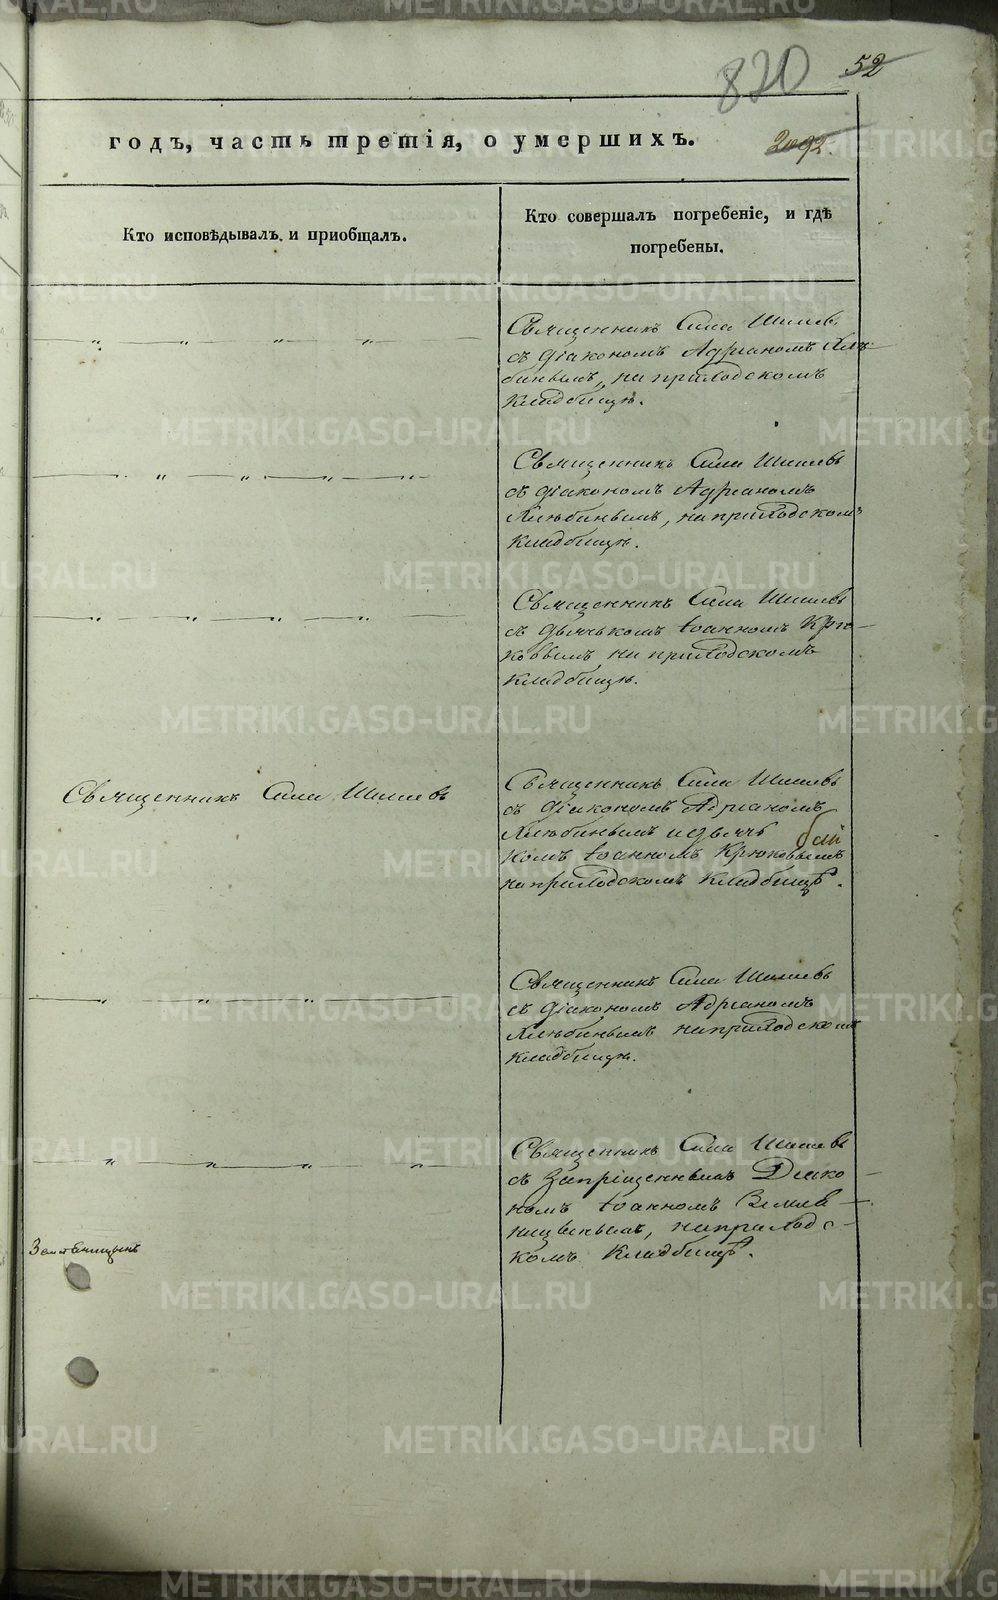 820 52
годъ, часть третія, о умершихъ.
2092.
Кто исповѣдывалъ и пріобщалъ.
Кто совершалъ погребеніе, и гдѣ
погребены.
Священникъ Сила Шишевъ
съ діакономъ Адріаномъ Хлѣ-
бинымъ, на приходскомъ
кладбищѣ.
Священникъ Сила Шишевъ
съ діакономъ Адріаномъ
Хлѣбинымъ, на приходскомъ
кладбищѣ.
Священникъ Сила Шишевъ
съ дьячькомъ Іоанномъ Крю-
ковымъ на приходскомъ
кладбищѣ.
Священникъ Сила Шишевъ
Священникъ Сила Шишевъ
съ діакономъ Адріаномъ
Хлѣбинымъ и дьячь
комъ Іоанномъ Крюковымъ
на приходскомъ кладбищѣ.
Священникъ Сила Шишевъ
съ діакономъ Адріаномъ
Хлѣбинымъ на приходскомъ
кладбищѣ.
Священникъ Сила Шишевъ
съ запрещеннымъ Діако-
номъ Іоанномъ
на приход с-
комъ кладбищѣ.
METRIKI.GASO-URAL.RU